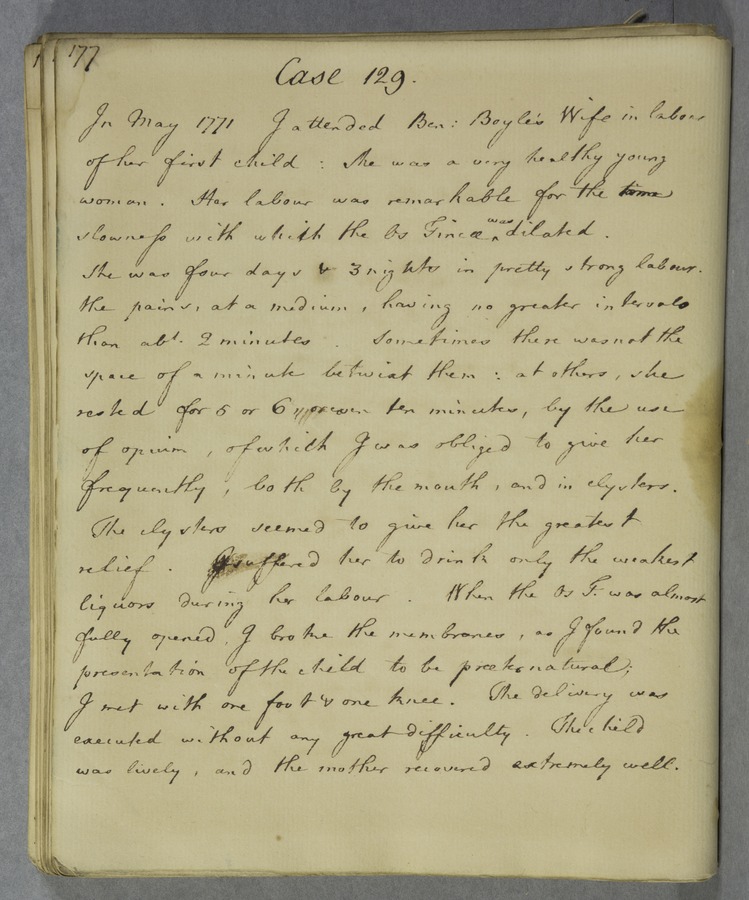 177
Case 129.
In May 1771 I attended Ben: Boyle's Wife in labour
of her first child : she was a very healthy young
woman . Her labour was remarkable for the time
slowness with which the Os Tincæ was dilated .
She was four days & 3 nights in pretty strong labour.
the pains, at a medium , having no greater intervals
than abt. 2 minutes . Sometimes there was not the
space of a minute betwixt them : at others , she
rested for 5 or 6, or even ten minutes, by the use
of opium , of which I was obliged to give her
frequently , both by the mouth , and in clysters .
The clysters seemed to give her the greatest
relief . I suffered her to drink only the weakest
liquors during her labour . When the Os T. was almost
fully opened , I broke the membranes , as I found the
presentation of the child to be præternatural ;
I met with one foot & one knee . The delivery was
executed without any great difficulty . The child
was lively , and the mother recovered extremely well .